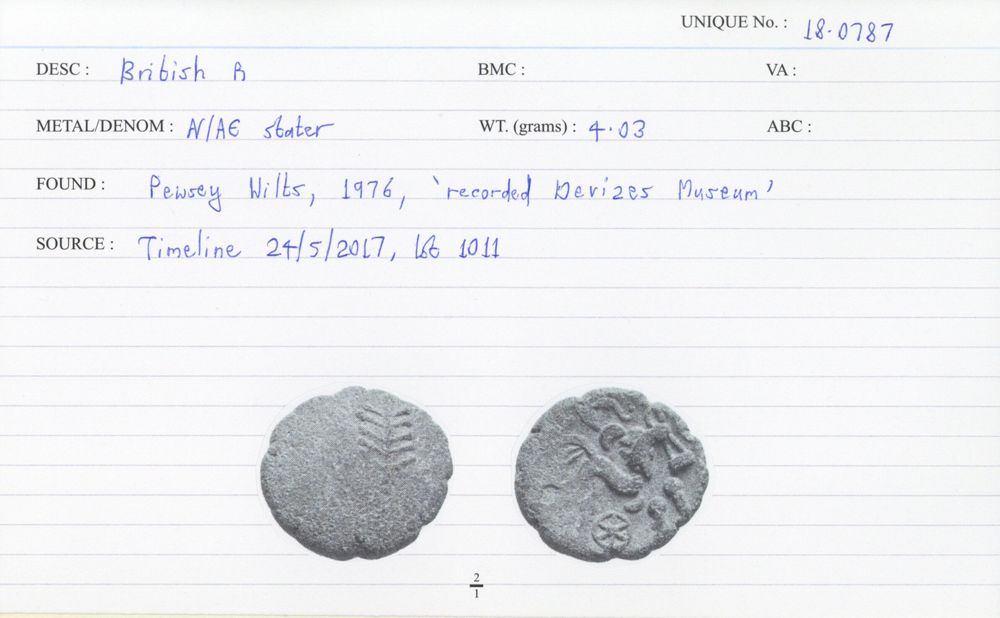 UNIQUE No. : 18·0787
DESC : British B BMC : VA :
METAL/DENOM : N/AE stater WT. (grams) : 4·03 ABC :
FOUND : Pewsey Wilts, 1976, 'recorded Devizes Museum'
SOURCE : Timeline 24/5/2017, lot 1011
2
1